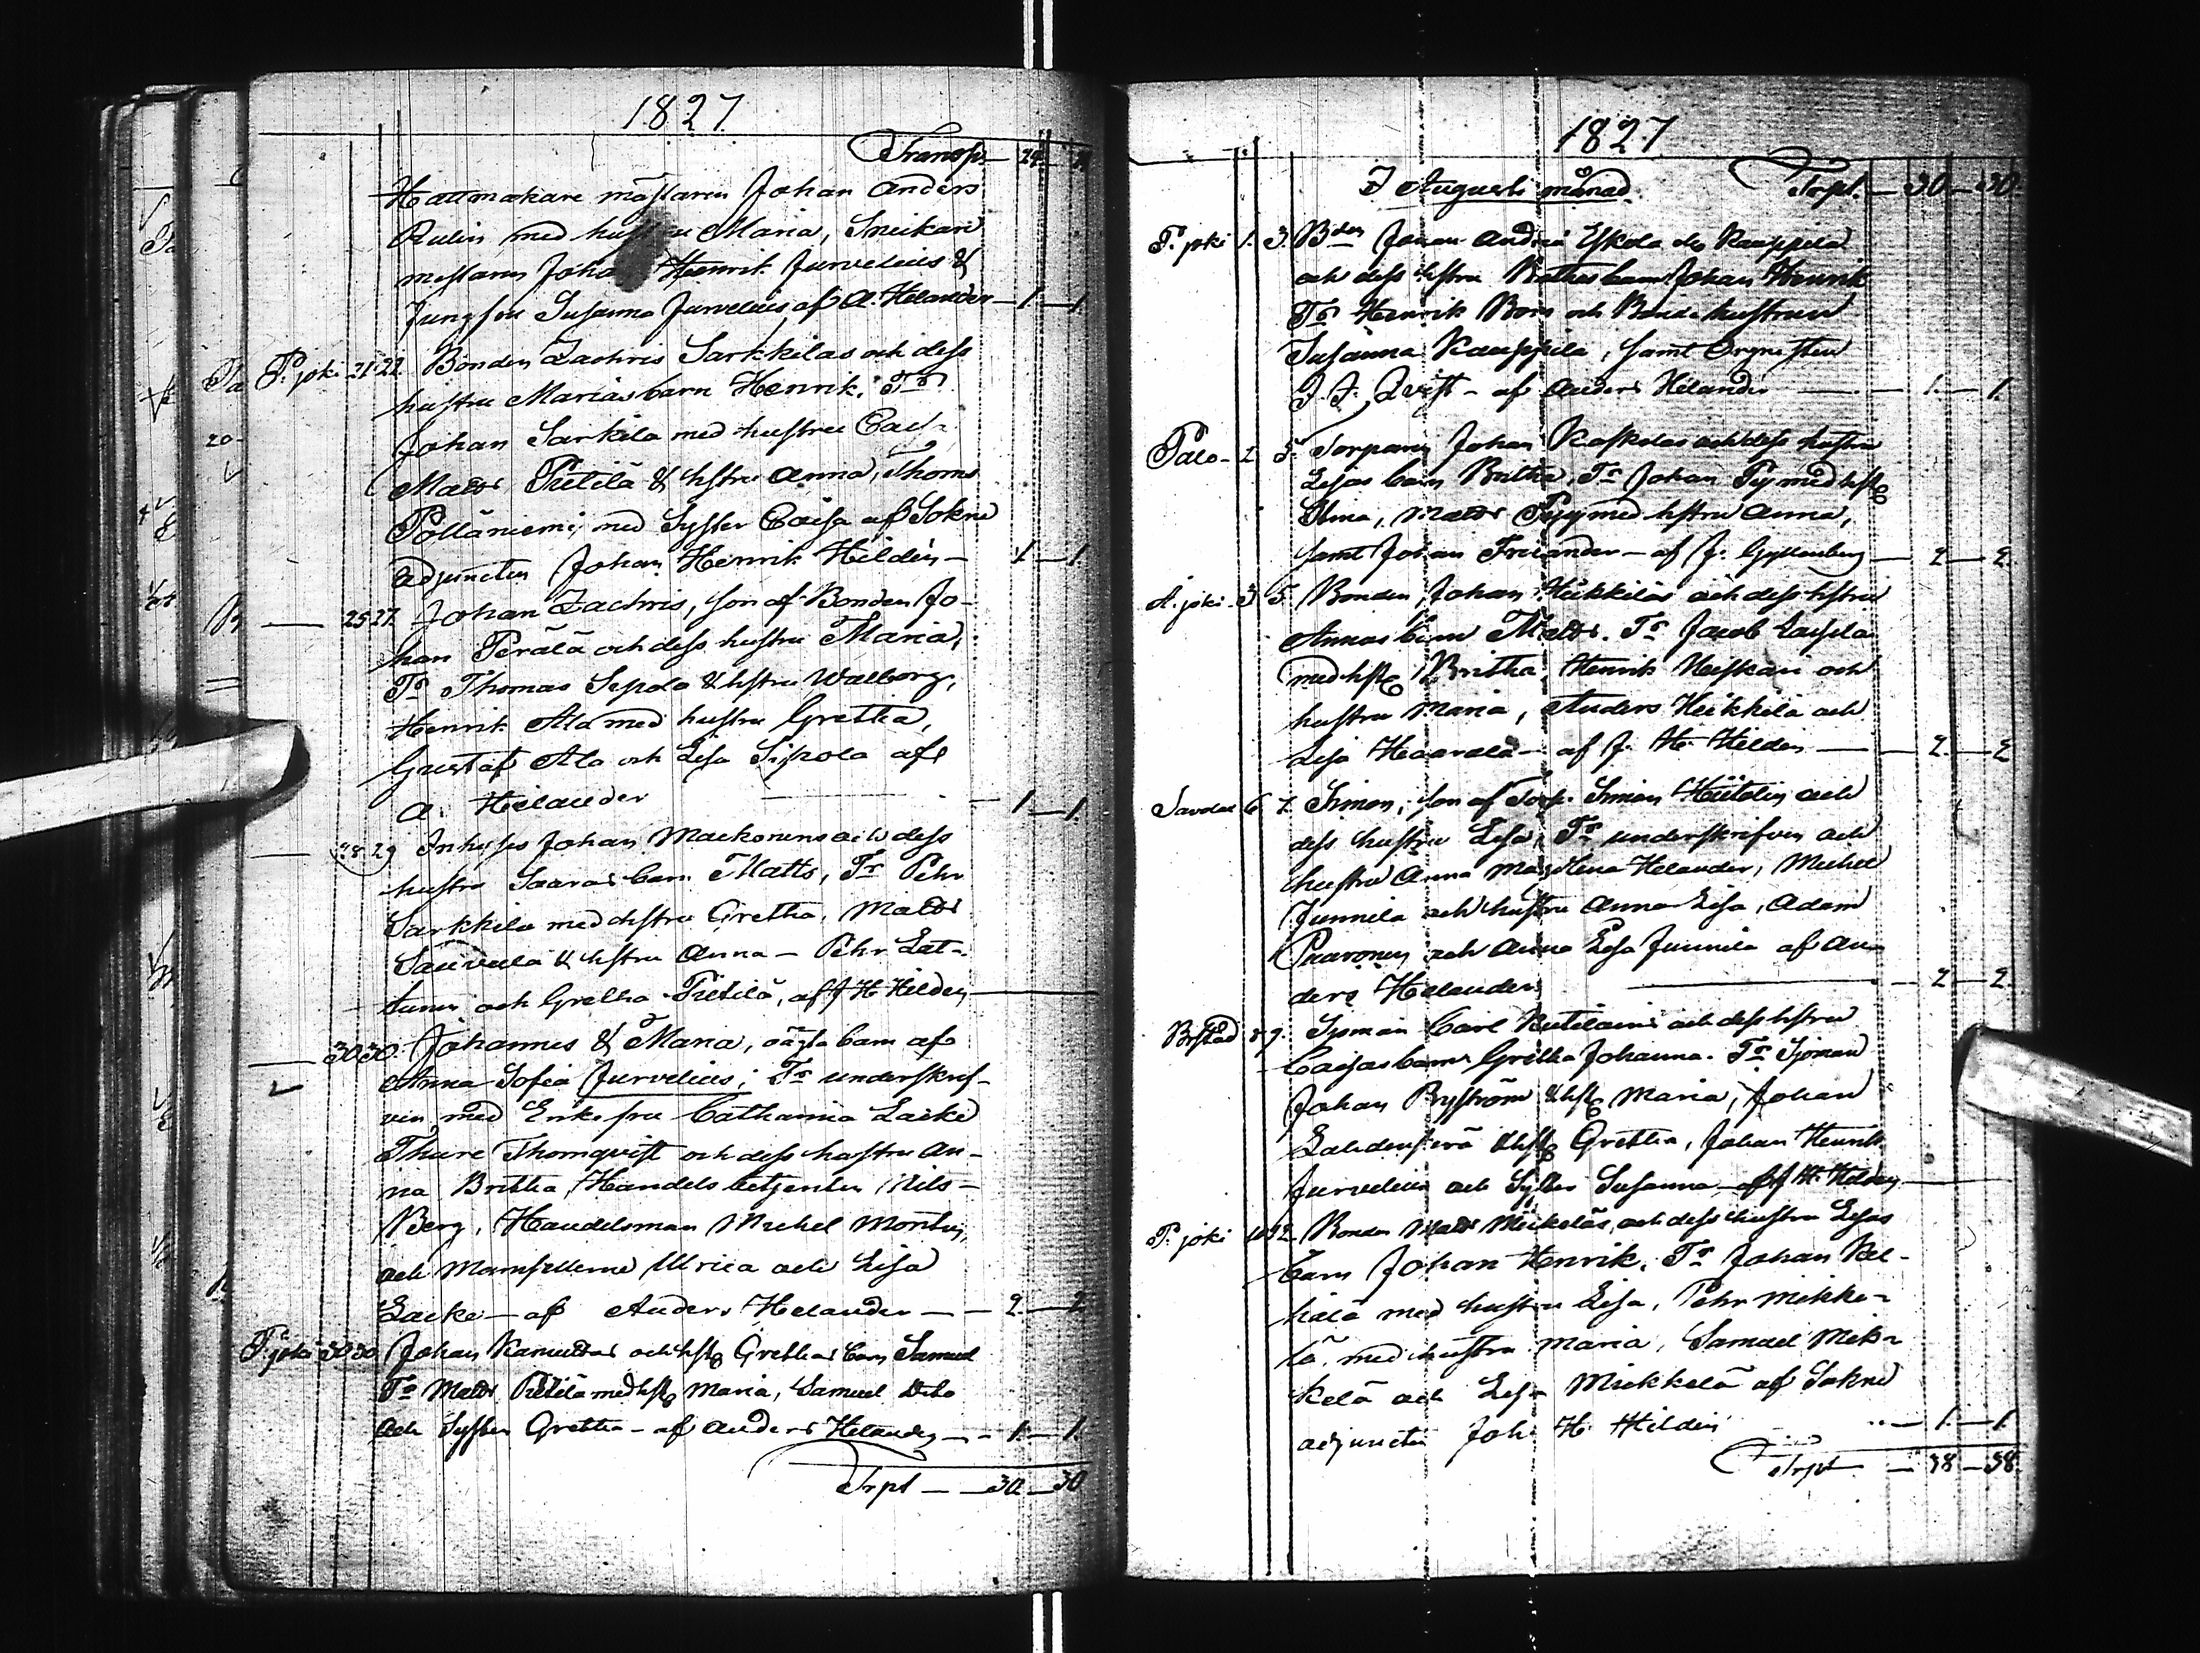 1827
Transp. — 24 —
Hattmakare mästaren Johan Anders
Rulin med hustru Maria, Snickari
mestaren Johan Henrik Jurvelius &
Jungfru Susanna Jurvelius af A. Helander — 1 — 1
P. joki 21 22 Bonden Zachris Sarkkilas och dess
hustru Marias barn Henrik. Tr
Johan Sarkila med hustru Caisa
Matts Pietilä & hstru Anna, Thoms
Pölläniemi, med Syster Caisa af Sokne
adjuncten Johan Henrik Hildén — 1 — 1
— 25 27 Johan Zachris, son af Bonden Jo-
han Perälä och dess hustru Maria,
Tr Thomas Sipola & hstru Walborg,
Henrik Ala med hustru Gretha,
Gustaf Ala och Lisa Sipola af
A. Helander — 1 — 1
— 28 29 Inhyses Johan Mackonens och dess
hustru Saaras barn Matts, Tr Pehr
Sarkkila med hstru Gretha, Matts
Sauvula & hstru Anna — Pehr Lat-
tunen och Gretha Pietilä, af J H Hilden —
— 30 30 Johannes & Maria, oägta barn af
Anna Sofia Jurvelius; Tr underskrif-
ven med Enkefru Catharina Lacke
Thure Thornqvist och dess hustru An-
na Britha, Handels betjenten Nils
Berg, Handelsman Michel Montin,
och Mamsellerne Ulrica och Lisa
Lacke — af Anders Helander — 2 — 2
P. joki 30 30 Johan Kamulas och hst Grethas barn Samuel
Tr Matts Pietilä med hst Maria, Samuel Dito
och Syster Gretha — af Anders Helander — 1 — 1
Trpt — 30 — 30
1827
I Augusti månad. Trpt. — 30 — 30
P. joki 1. 3. Bden Johan Andrea Eskola Kauppila
och dess hstru Brithas barn Johan Henrik
Tr Henrik Bors och Bonde hustrun
Susanna Kauppila, samt Orgnisten
J. J. Qvist — af Anders Helander — 1 — 1
Palo- 2 5. Torparen Johan Koskelas och dess hustru
Lisas barn Britha, Tr Johan Pyy med hst
Stina, Matts Pyy med hstru Anna,
samt Johan Freiander — af J. Gyllenberg — 2 — 2
A. joki 3 5 Bonden Johan Heikkiläs och dess hstru
Annas barn Matts. Tr Jacob
med hst Britha, Henrik Heiskari och
hustru Maria, Anders Heikkilä och
Lisa Haarala — af J. H. Hilden — 2 — 2
6 7. Simon, son af Torp. Simon och
dess hustru Lisa, Tr underskrifven och
hustru Anna Magdlena Helander, Michel
Junnila och hustru Anna Lisa, Adam
Paavonen och Anna Lisa Junnila af An-
ders Helander — 2 — 2
8 9. Sjöman Carl Rutilains och dess hstru
Caisas barn Gretha Johanna. Tr Sjöman
Johan Byström & hst Maria, Johan
Lahdenperä & hst Gretha, Johan Henrik
Jurvelius och Syster Susanna af J H. Hilden —
P. joki 10 12 Bonden Matts Mickeläs, och dess hustru Lisas
barn Johan Henrik, Tr Johan Kel-
halä med hustru Lisa, Pehr Mikke-
lä, med hustru Maria, Samuel Mik-
kelä och Lisa Mickkelä af Sokne
adjuncten Joh H. Hilden — 1 — 1
Trpt — 38 — 38